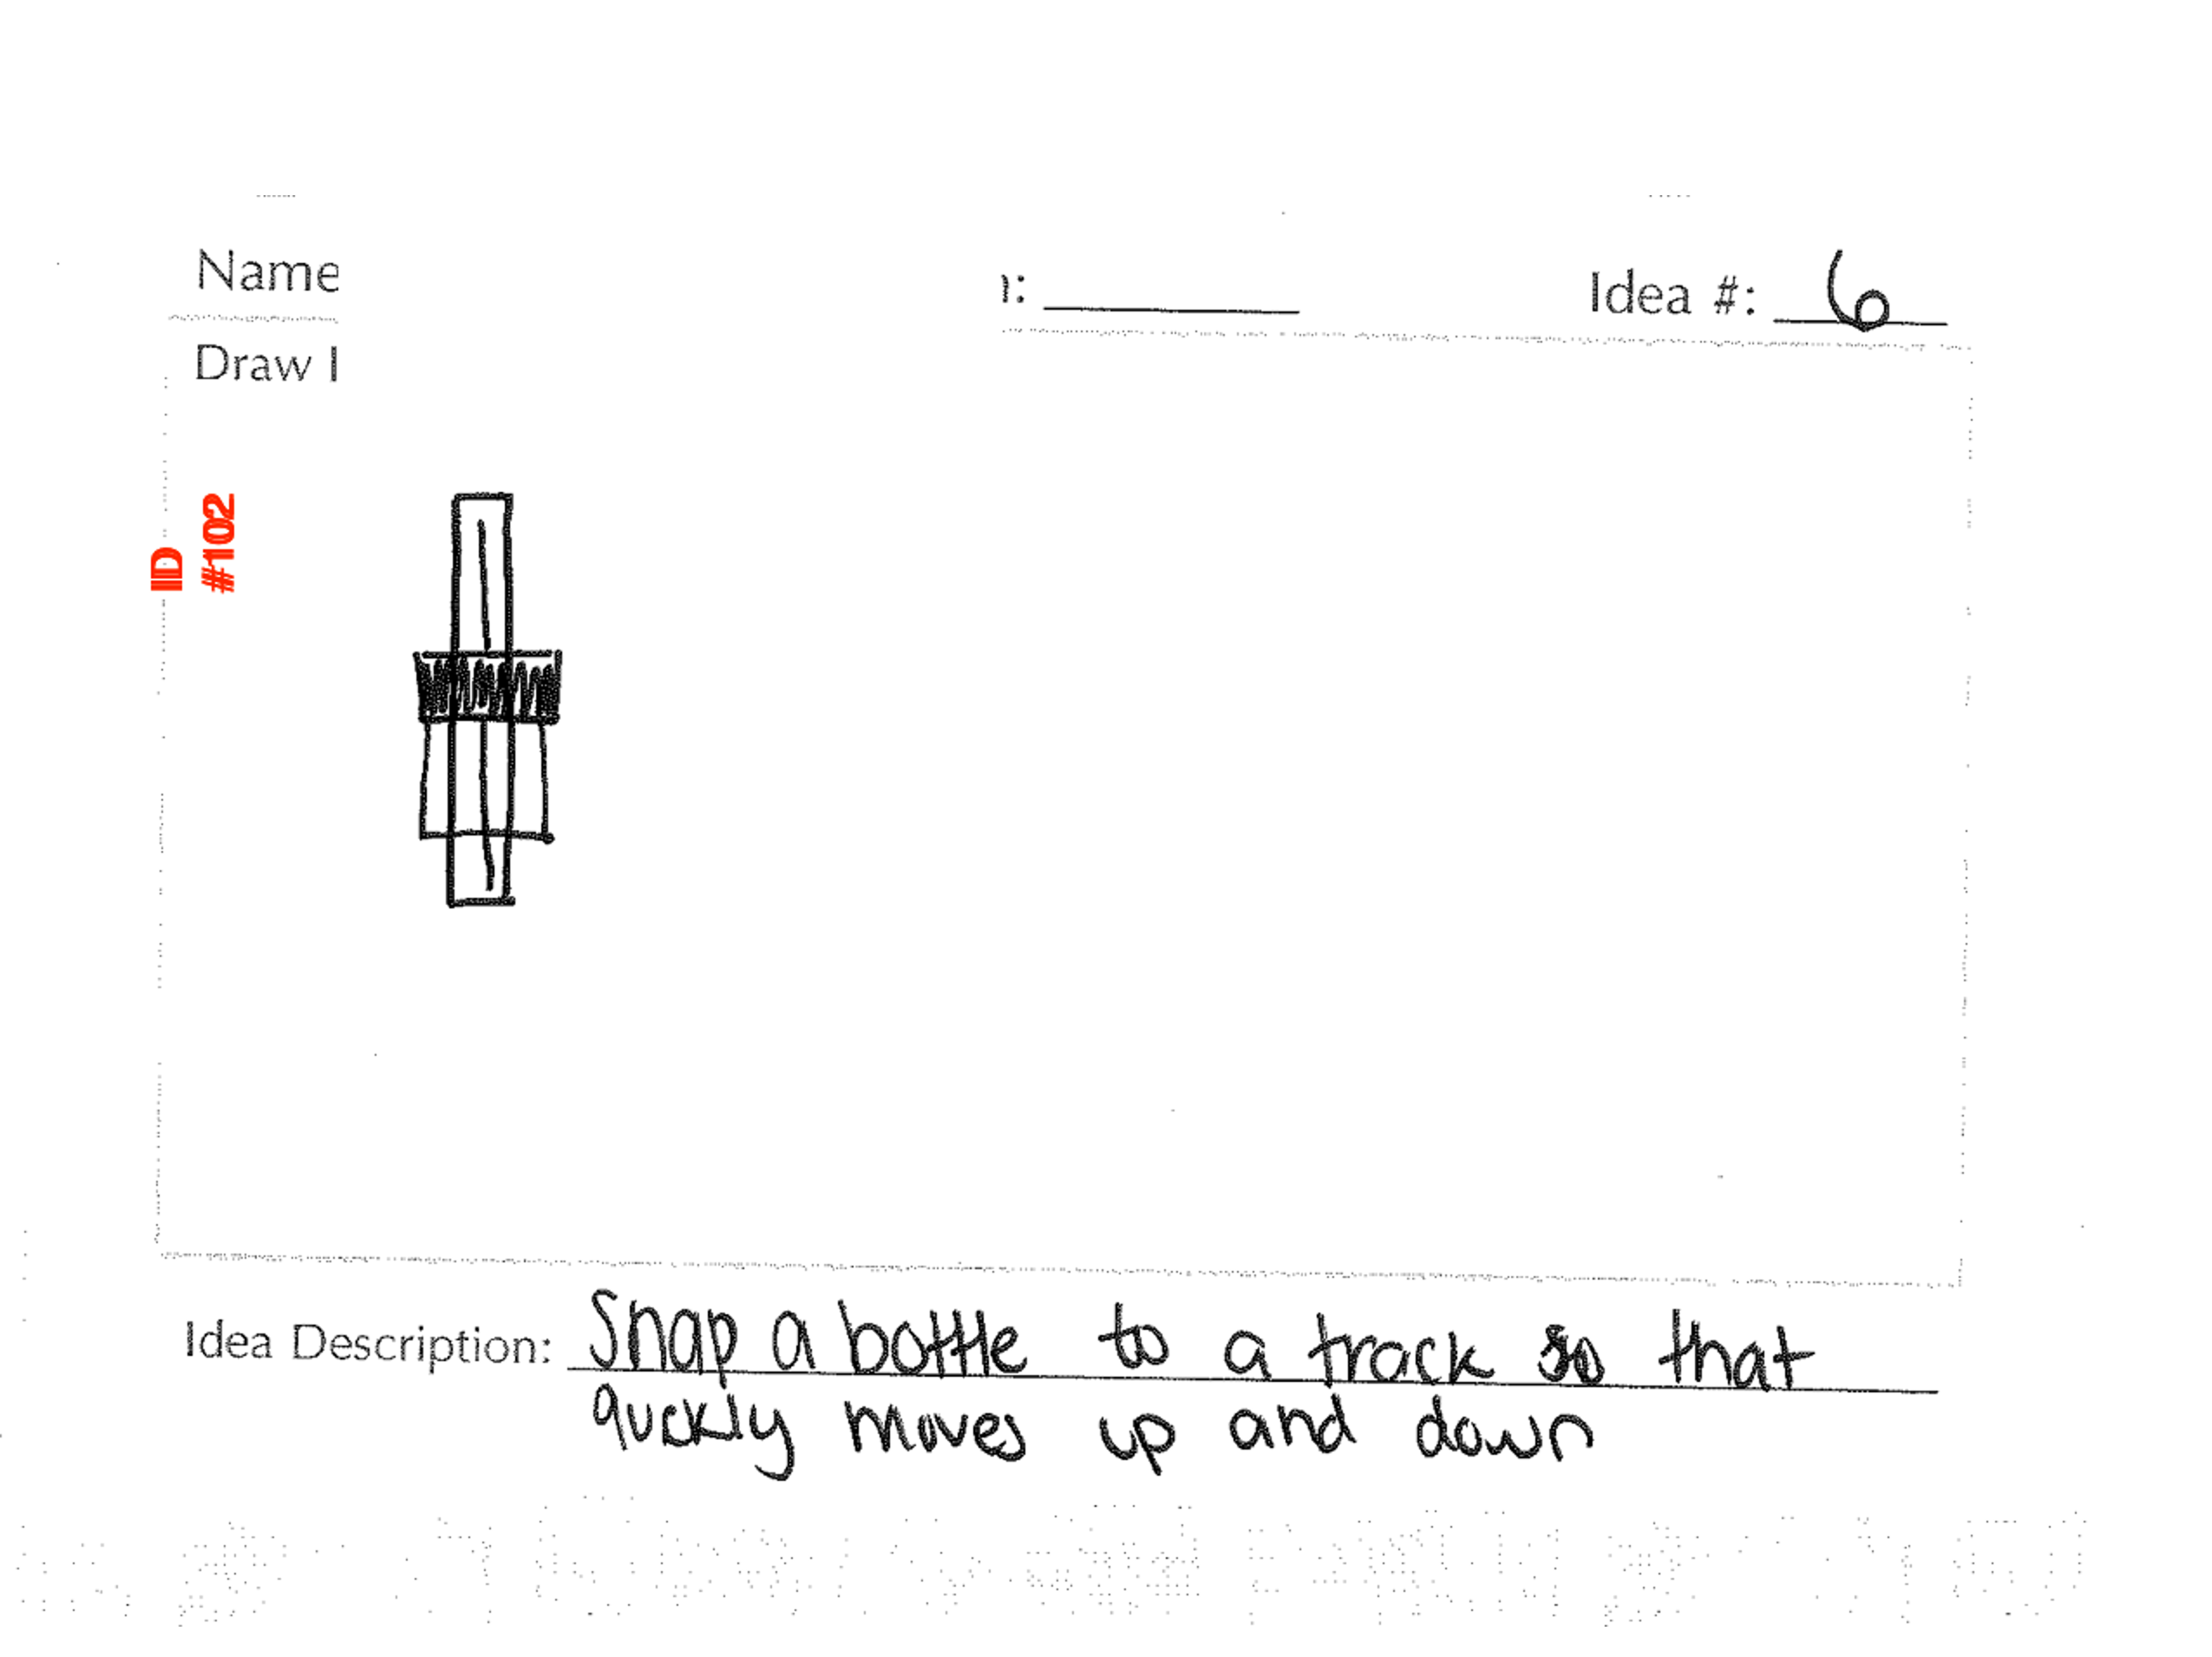 Name
ı: ________
Idea #: 6
Draw I
ID
#102
Idea Description: Snap a bottle to a track so that
quickly moves up and down